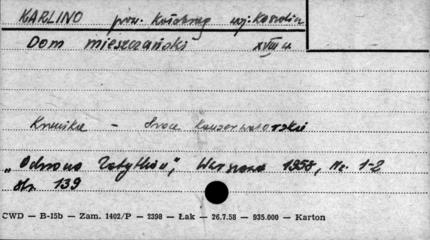 KARLINO pow. Kołobrzeg woj. Koszalin
Dom mieszczański XVIII w.
Kronika – Prace konserwatorskie
„Ochrona Zabytków”, Warszawa 1958, Nr. 1-2
str. 139
CWD — B-15b — Zam. 1402/P — 2398 — Łak — 26.7.58 — 935.000 — Karton